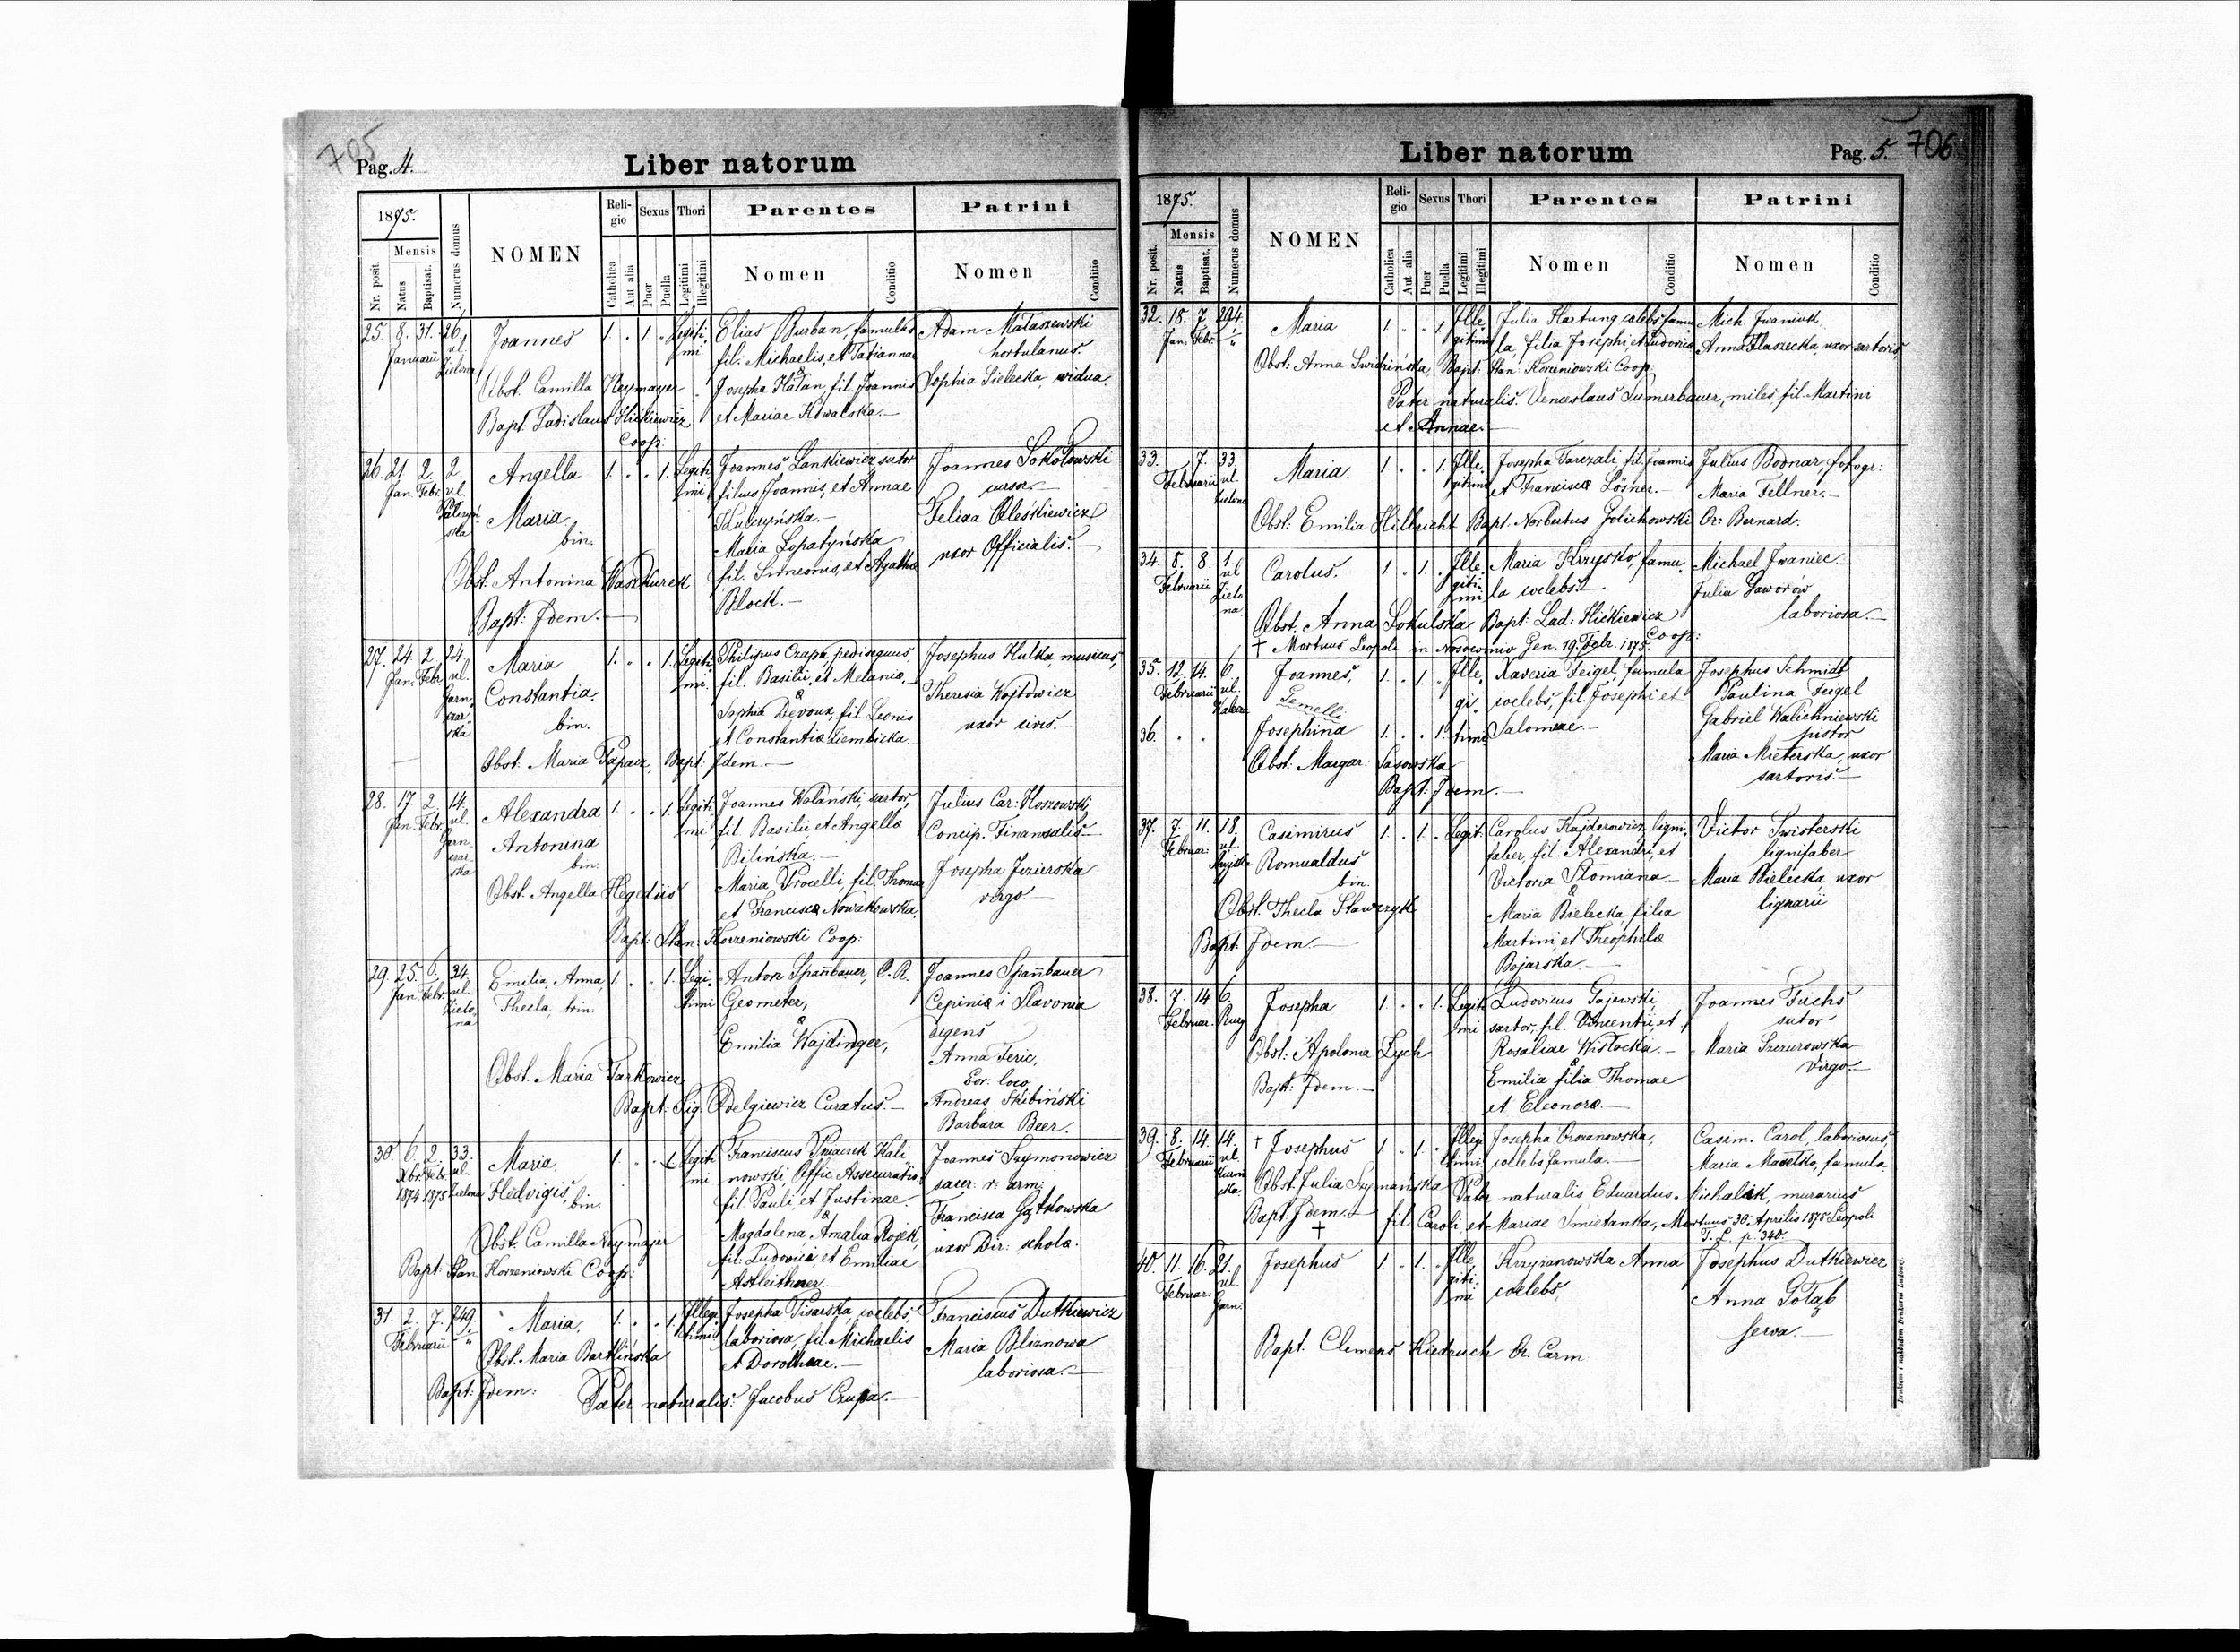 705
Pag. 4.
Liber natorum
1875.
Mensis
Nr. posit.
Natus
Baptisat.
Numerus domus
NOMEN
Religio
Catholica
Aut alia
Sexus
Puer
Puella
Thori
Legitimi
Illegitimi
Parentes
Nomen
Conditio
Patrini
Nomen
Conditio
25. 8. 31. 26. Joannes 1. . 1 . Legiti Elias Burban, famulus Adam Mataszewski
Januarii ul. Zielona mi fil. Michaelis, et Tatianna hortulanus.
Obst. Camilla Neymayer Josepha Hałan, fil. Joannis Sophia Sielecka, vidua
Bapt. Ladislaus Hickiewicz et Mariae Kowalska.—
Coop:
26. 21. 2. 2. Angella 1. . . 1. Legiti Joannes Lankiewicz, sutor Joannes Sokołowski
Jan. Febr. ul. mi filius Joannis, et Annae cursor.—
Maria Felixa Oleskiewicz
bin. Maria Lopatyńska uxor Officialis.—
Obst. Antonina Waszkurek fil. Simeonis, et Agatha
Bapt: Idem.— Block.—
27. 24. 2. 24. Maria 1. . . 1. Legiti Philipus Czapa, pedisequus, Josephus Hulka musicus,
Jan. Febr. ul. Garncarska Constantia. mi. fil. Basilii, et Melania,— Theresia Wojtowicz
bin. & Sophia Devoux, fil. Leonis uxor civis.—
et Constantia Ziembicka.—
Obst: Maria Tapacz, Bapt: Idem.—
28. 17. 2. 14. Alexandra 1. . . 1. Legiti Joannes Wolański, sartor, Julius Car: Hoszowski,
Jan. Febr. ul. Garncarska Antonina mi fil. Basilii, et Angella Concip. Finansalis
bin: Bilińska.— Josepha Jezierska
Obst. Angella Hegedüs Maria Procelli, fil. Thomae virgo.—
et Francisca Nowakowska.
Bapt: Stan: Korzeniowski Coop:
29. 25. 6. 24. Emilia, Anna, 1. . . 1. Legi. Anton Spannbauer, C. R. Joannes Spannbauer
Jan. Febr. ul. Zielona Thecla, trin: timi Geometer, Cepinia i Slavonia
& Emilia Wajdinger, degens
Anna Feric,
Obst. Maria Tarkowicz Cor: loco
Bapt: Sig: Odelgiewicz Curatus.— Andreas Skibiński
Barbara Beer.
30. 6. 2. 33. Maria, 1. . . 1. Legiti Franciscus Ptaczek Kali Joannes Szymonowicz
Xbr. Febr. ul. mi nowski, Offic. Assecuratio. sacer: r: arm:
1874 1875 Zielona Hedvigis, bin. fil. Pauli, et Justinae Francisca Gątkowska
& Magdalena, Amalia Rojek, uxor Dir: schola.
Obst. Camilla Neymajer fil. Ludovici, et Emiliae
Bapt: Stan. Korzeniowski Coop: Astleithner.—
31. 2. 7. 749. Maria, 1. . . 1. Illegi Josepha Pisarska, coelebs, Franciscus Dutkiewicz
Februarii timi laboriosa, fil. Michaelis Maria Bliznowa
Obst. Maria Bartlińska et Dorotheae.— laboriosa.—
Bapt: Idem: Pater naturalis: Jacobus Czupa.—
Liber natorum
Pag. 5. 706
1875.
Mensis
Nr. posit.
Natus
Baptisat.
Numerus domus
NOMEN
Religio
Catholica
Aut alia
Sexus
Puer
Puella
Thori
Legitimi
Illegitimi
Parentes
Nomen
Conditio
Patrini
Nomen
Conditio
32. 18. 7. 294. Maria 1. . . 1. Ille Julia Hartung coelebs famu Mich. Iwaniuk
Jan. Febr. gitimi la, filia Josephi et Ludovica Anna Flaszecka, uxor sartoris
Obst: Anna Swidzińska, Bapt: Stan: Korzeniowski Coop:
Pater naturalis: Venceslaus Sumerbauer, miles fil. Martini
et Annae.—
33. 7. 33. Maria. 1. . . 1. Ille. Josepha Tarczali, fil. Joannis Julius Bodnar, fotogr:
Februarii ul. Zielona gitimi et Francisca Lösner.— Maria Fellner.—
Obst: Emilia Hilbricht Bapt: Norbertus Golichowski Or: Bernard:
34. 8. 8. 1. Carolus. 1. . 1. . Ille. Maria Krzysko, famu. Michael Iwaniec.—
Februarii ul. Zielona. gitimi la coelebs.— Julia Jaworów
Obst. Anna Sokulska Bapt: Lad: Hickiewicz laboriosa.—
Coop:
† Mortuus Leopoli in Nosocomio Gen. 19. Febr. 1875.
35. 12. 14. 6 Joannes, 1. . 1. . Ille. Xaveria Feigel, famula Josephus Schmidt
Februarii ul. Gemelli gi. coelebs, fil. Josephi et Paulina Feigel
36. . . Josephina 1. . . 1. timi Salomeae.— Gabriel Walichniewski
pistor
Obst. Margar: Sasowska Maria Mieterska, uxor
Bapt: Idem.— sartoris.—
37. 7. 11. 18. Casimirus 1. . 1. . Legit. Carolus Kajderowicz, ligni. Victor Swisterski
Februar: ul. Romualdus faber, fil. Alexandri, et lignifaber
bin. Victoria Słomiana.— Maria Bielecka, uxor
Obst. Thecla Sławczyk & Maria Bielecka, filia lignarii
Bapt: Idem.— Martini, et Theophila
Bojarska.—
38. 7. 14. 6. Josepha 1. . . 1. Legiti Ludovicus Gajewski, Joannes Fuchs
Februar. Rury mi sartor, fil. Vincentii, et sutor
Obst: Apolonia Zych Rosaliae Wisłocka.— Maria Szczurowska
Bapt: Idem.— & Emilia filia Thomae Virgo.—
et Eleonora.—
39. 8. 14. 14. † Josephus 1. . 1. . Illegi Josepha Crozanowska, Casim. Carol, laboriosus,
Februarii ul. timi coelebs famula.— Maria Masełko, famula
Obst. Julia Szymańska Pater naturalis Eduardus Michalik, murarius
Bapt. Idem.— fil. Caroli, et Mariae Smietanka, Mortuus 30. Aprilis 1875 Leopoli
† T. L. p. 340.
40. 11. 16. 21. Josephus 1. . 1. . Ille Krzyzanowska Anna Josephus Dutkiewicz
Februar: ul. Garn: gitimi coelebs, Anna Gołąb
serva.—
Bapt: Clemens Kiedruch Or. Carm
Drukiem i nakładem Drukarni Ludowej.